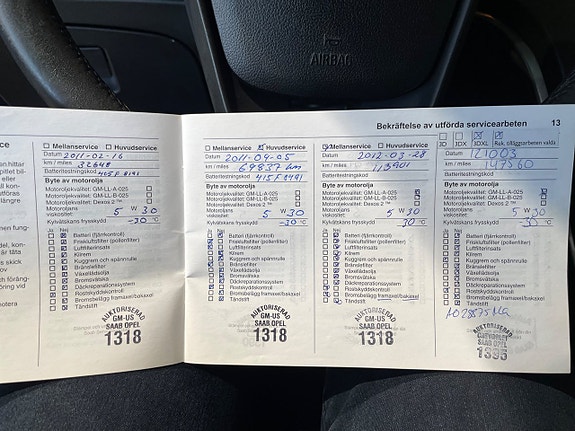 AIRBAG
Bekräftelse av utförda servicearbeten 13
Mellanservice Huvudservice
Datum 2011-02-16
km / miles 32648
Batteritestningskod 415F 8191
Byte av motorolja
Motoroljekvalitet: GM-LL-A-025
Motoroljekvalitet: GM-LL-B-025
Motoroljekvalitet: Dexos 2 ™
Motoroljans
viskositet: 5 W 30
Kylvätskans frysskydd -30 °C
Ja Nej
Batteri (fjärrkontroll)
Friskluftsfilter (pollenfilter)
Luftfilterinsats
Kilrem
Kuggrem och spännrulle
Bränslefilter
Växellådsolja
Bromsvätska
Däckreparationssystem
Rostskyddskontroll
Bromsbelägg framaxel/bakaxel
Tändstift
AUKTORISERAD
GM-US
SAAB OPEL
1318
Mellanservice Huvudservice
Datum 2011-04-05
km / miles 69837 km
Batteritestningskod 415F 8491
Byte av motorolja
Motoroljekvalitet: GM-LL-A-025
Motoroljekvalitet: GM-LL-B-025
Motoroljekvalitet: Dexos 2 ™
Motoroljans
viskositet: 5 W 30
Kylvätskans frysskydd -30 °C
Ja Nej
Batteri (fjärrkontroll)
Friskluftsfilter (pollenfilter)
Luftfilterinsats
Kilrem
Kuggrem och spännrulle
Bränslefilter
Växellådsolja
Bromsvätska
Däckreparationssystem
Rostskyddskontroll
Bromsbelägg framaxel/bakaxel
Tändstift
AUKTORISERAD
GM-US
SAAB OPEL
1318
Mellanservice Huvudservice
Datum 2012-03-28
km / miles 113901
Batteritestningskod
Byte av motorolja
Motoroljekvalitet: GM-LL-A-025
Motoroljekvalitet: GM-LL-B-025
Motoroljekvalitet: Dexos 2 ™
Motoroljans
viskositet: 5 W 30
Kylvätskans frysskydd -30 °C
Ja Nej
Batteri (fjärrkontroll)
Friskluftsfilter (pollenfilter)
Luftfilterinsats
Kilrem
Kuggrem och spännrulle
Bränslefilter
Växellådsolja
Bromsvätska
Däckreparationssystem
Rostskyddskontroll
Bromsbelägg framaxel/bakaxel
Tändstift
AUKTORISERAD
GM-US
SAAB OPEL
1318
Datum 121003
km / miles 147560
Batteritestningskod
Byte av motorolja
Motoroljekvalitet: GM-LL-A-025
Motoroljekvalitet: GM-LL-B-025
Motoroljekvalitet: Dexos 2 ™
Motoroljans
viskositet: 5 W 30
Kylvätskans frysskydd -30 °C
Ja Nej
Batteri (fjärrkontroll)
Friskluftsfilter (pollenfilter)
Luftfilterinsats
Kilrem
Kuggrem och spännrulle
Bränslefilter
Växellådsolja
Bromsvätska
Däckreparationssystem
Rostskyddskontroll
Bromsbelägg framaxel/bakaxel
Tändstift
AUKTORISERAD
SAAB OPEL
1395